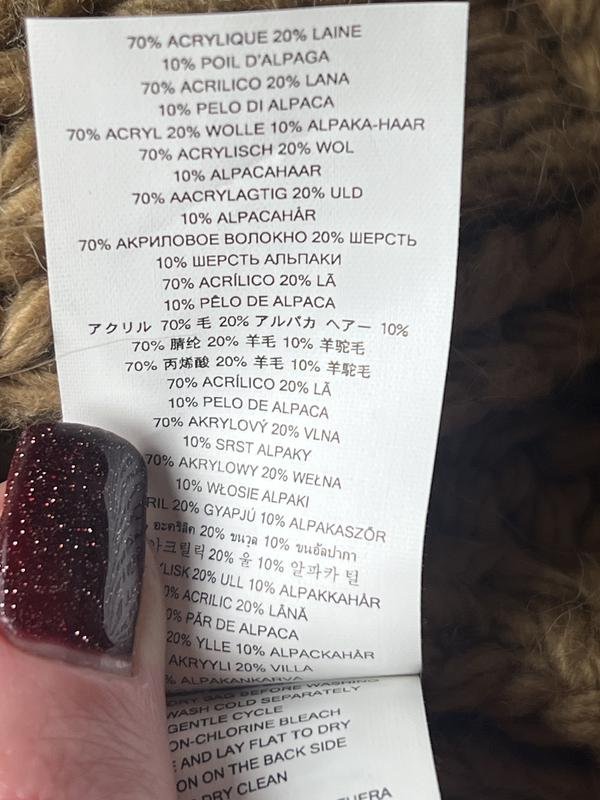 70% ACRYLIQUE 20% LAINE
10% POIL D'ALPAGA
70% ACRILICO 20% LANA
10% PELO DI ALPACA
70% ACRYL 20% WOLLE 10% ALPAKA-HAAR
70% ACRYLISCH 20% WOL
10% ALPACAHAAR
70% AACRYLAGTIG 20% ULD
10% ALPACAHÅR
70% АКРИЛОВОЕ ВОЛОКНО 20% ШЕРСТЬ
10% ШЕРСТЬ АЛЬПАКИ
70% ACRÍLICO 20% LÃ
10% PÊLO DE ALPACA
アクリル 70% 毛 20% アルパカ ヘアー 10%
70% 腈纶 20% 羊毛 10% 羊驼毛
70% 丙烯酸 20% 羊毛 10% 羊駝毛
70% ACRÍLICO 20% LÃ
10% PELO DE ALPACA
70% AKRYLOVÝ 20% VLNA
10% SRST ALPAKY
70% AKRYLOWY 20% WEŁNA
10% WŁOSIE ALPAKI
20% GYAPJÚ 10% ALPAKASZŐR
% อะคริลิค 20% ขนวูล 10% ขนอัลปากา
20% 울 10% 알파카 털
20% ULL 10% ALPAKKAHÅR
ACRILIC 20% LÂNĂ
PĂR DE ALPACA
20% YLLE 10% ALPACKAHÅR
AKRYYLI 20% VILLA
% ALPAKANKARVA
DRY BAG BEFORE WASHING
WASH COLD SEPARATELY
GENTLE CYCLE
CHLORINE BLEACH
AND LAY FLAT TO DRY
ON THE BACK SIDE
DRY CLEAN